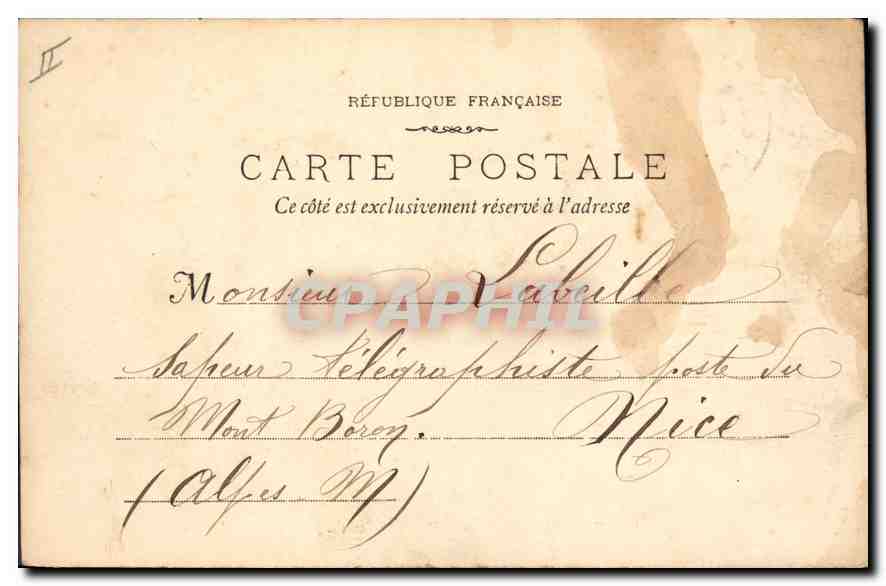 II
RÉPUBLIQUE FRANÇAISE
CARTE POSTALE
Ce côté est exclusivement réservé à l'adresse
Monsieur Labeille
CPAPHIL
Sapeur télégraphiste poste du
Mont Boron. Nice
(Alpes M)